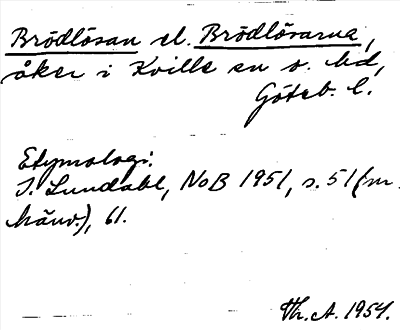 Brödlösan el. Brödlösarna,
åker i Kville sn o. hd,
Göteb. l.
Etymologi:
I. Lundahl, NoB 1951, s. 51 (m.
hänv.), 61.
Th. A. 1954.